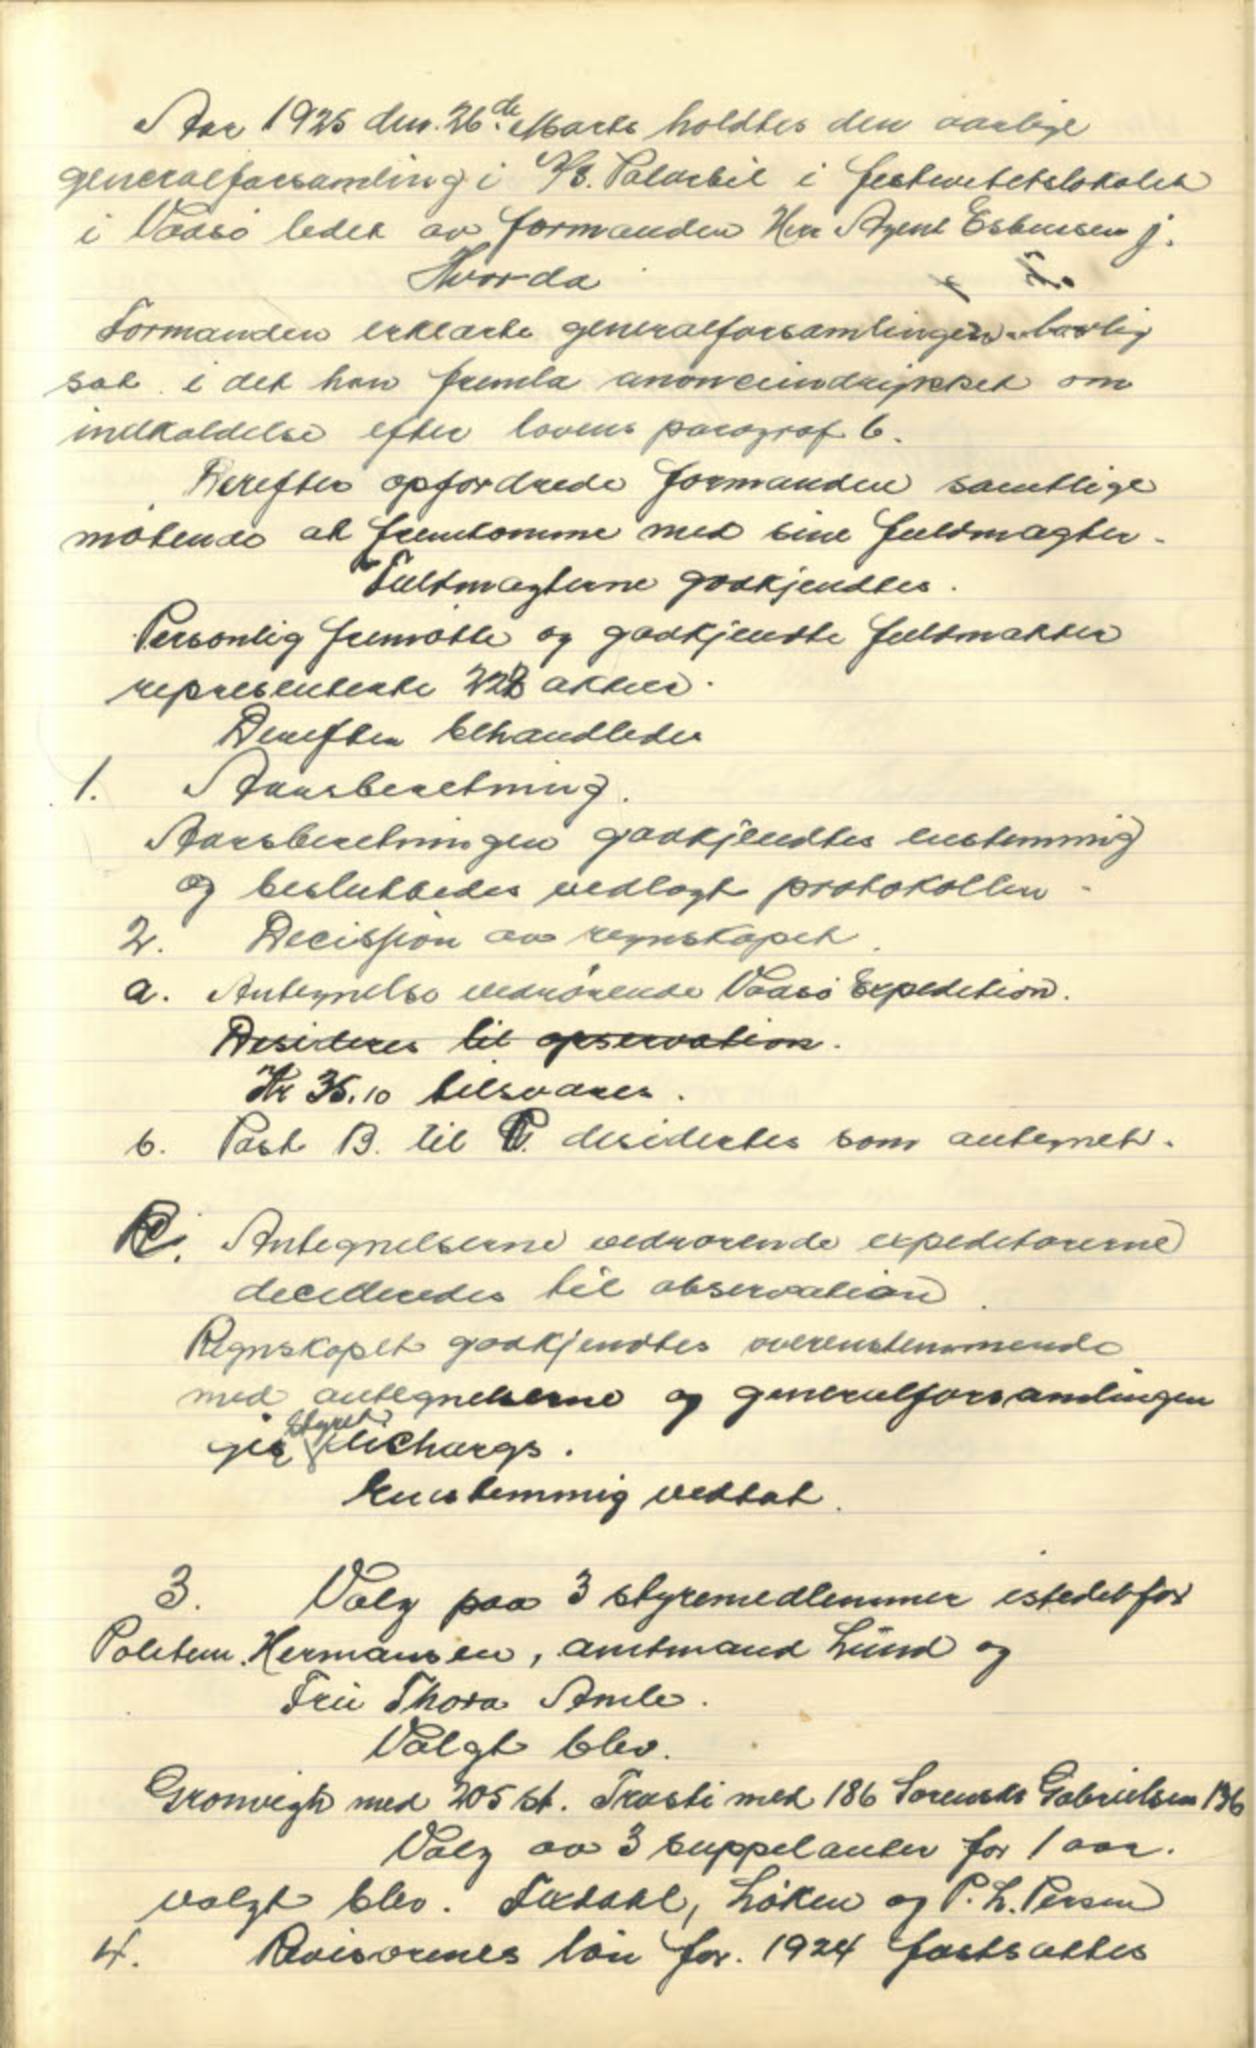 Aar 1925 den 26de Marts holdtes den aarlige
generalforsamling i A/S. Polarbil i festivitetslokalet
i Vadsö ledet av formanden Herr Agent Esbensen j.
Hvorda
Formanden erklærte generalforsamlingen lovlig
sat i det han fremla anonceindrykket om
indkaldelse efter lovens paragraf 6.
Derefter opfordrede formanden samtlige
mötende at fremkomme med sine fuldmagter.
Fuldmagterne godkjendtes.
Personlig fremötte og godkjendte fuldmakter
representerte 228 aktier.
Derefter behandledes
1. Aarsberetning.
Aarsberetningen godkjendtes enstemmig
og besluttedes vedlagt protokollen
2. Decission av regnskapet.
a. Antegnelse vedrörende Vadsö Expedition.
Desideres til opservation.
Kr 35.10 tilsvares.
b. Post B. til desidertes som antegnet.
C. Antegnelserne vedrörende expeditörerne
decideredes til observation.
Regnskapet godkjendtes overenstemmende
med antegnelserne og generalforsamlingen
gir styret decharge.
Enstemmig vedtat.
3. Valg paa 3 styremedlemmer istedetfor
Politim. Hermansen, amtmand Lund og
Fru Thora Amle.
Valgt blev.
Grönvigh med 205 st. Trasti med 186 Sorenskr Gabrielsen 136
Valg av 3 suppelanter for 1 aar.
valgt blev. Löken og P. L. Persen
4. Revisorenes lön for 1924 fastsattes